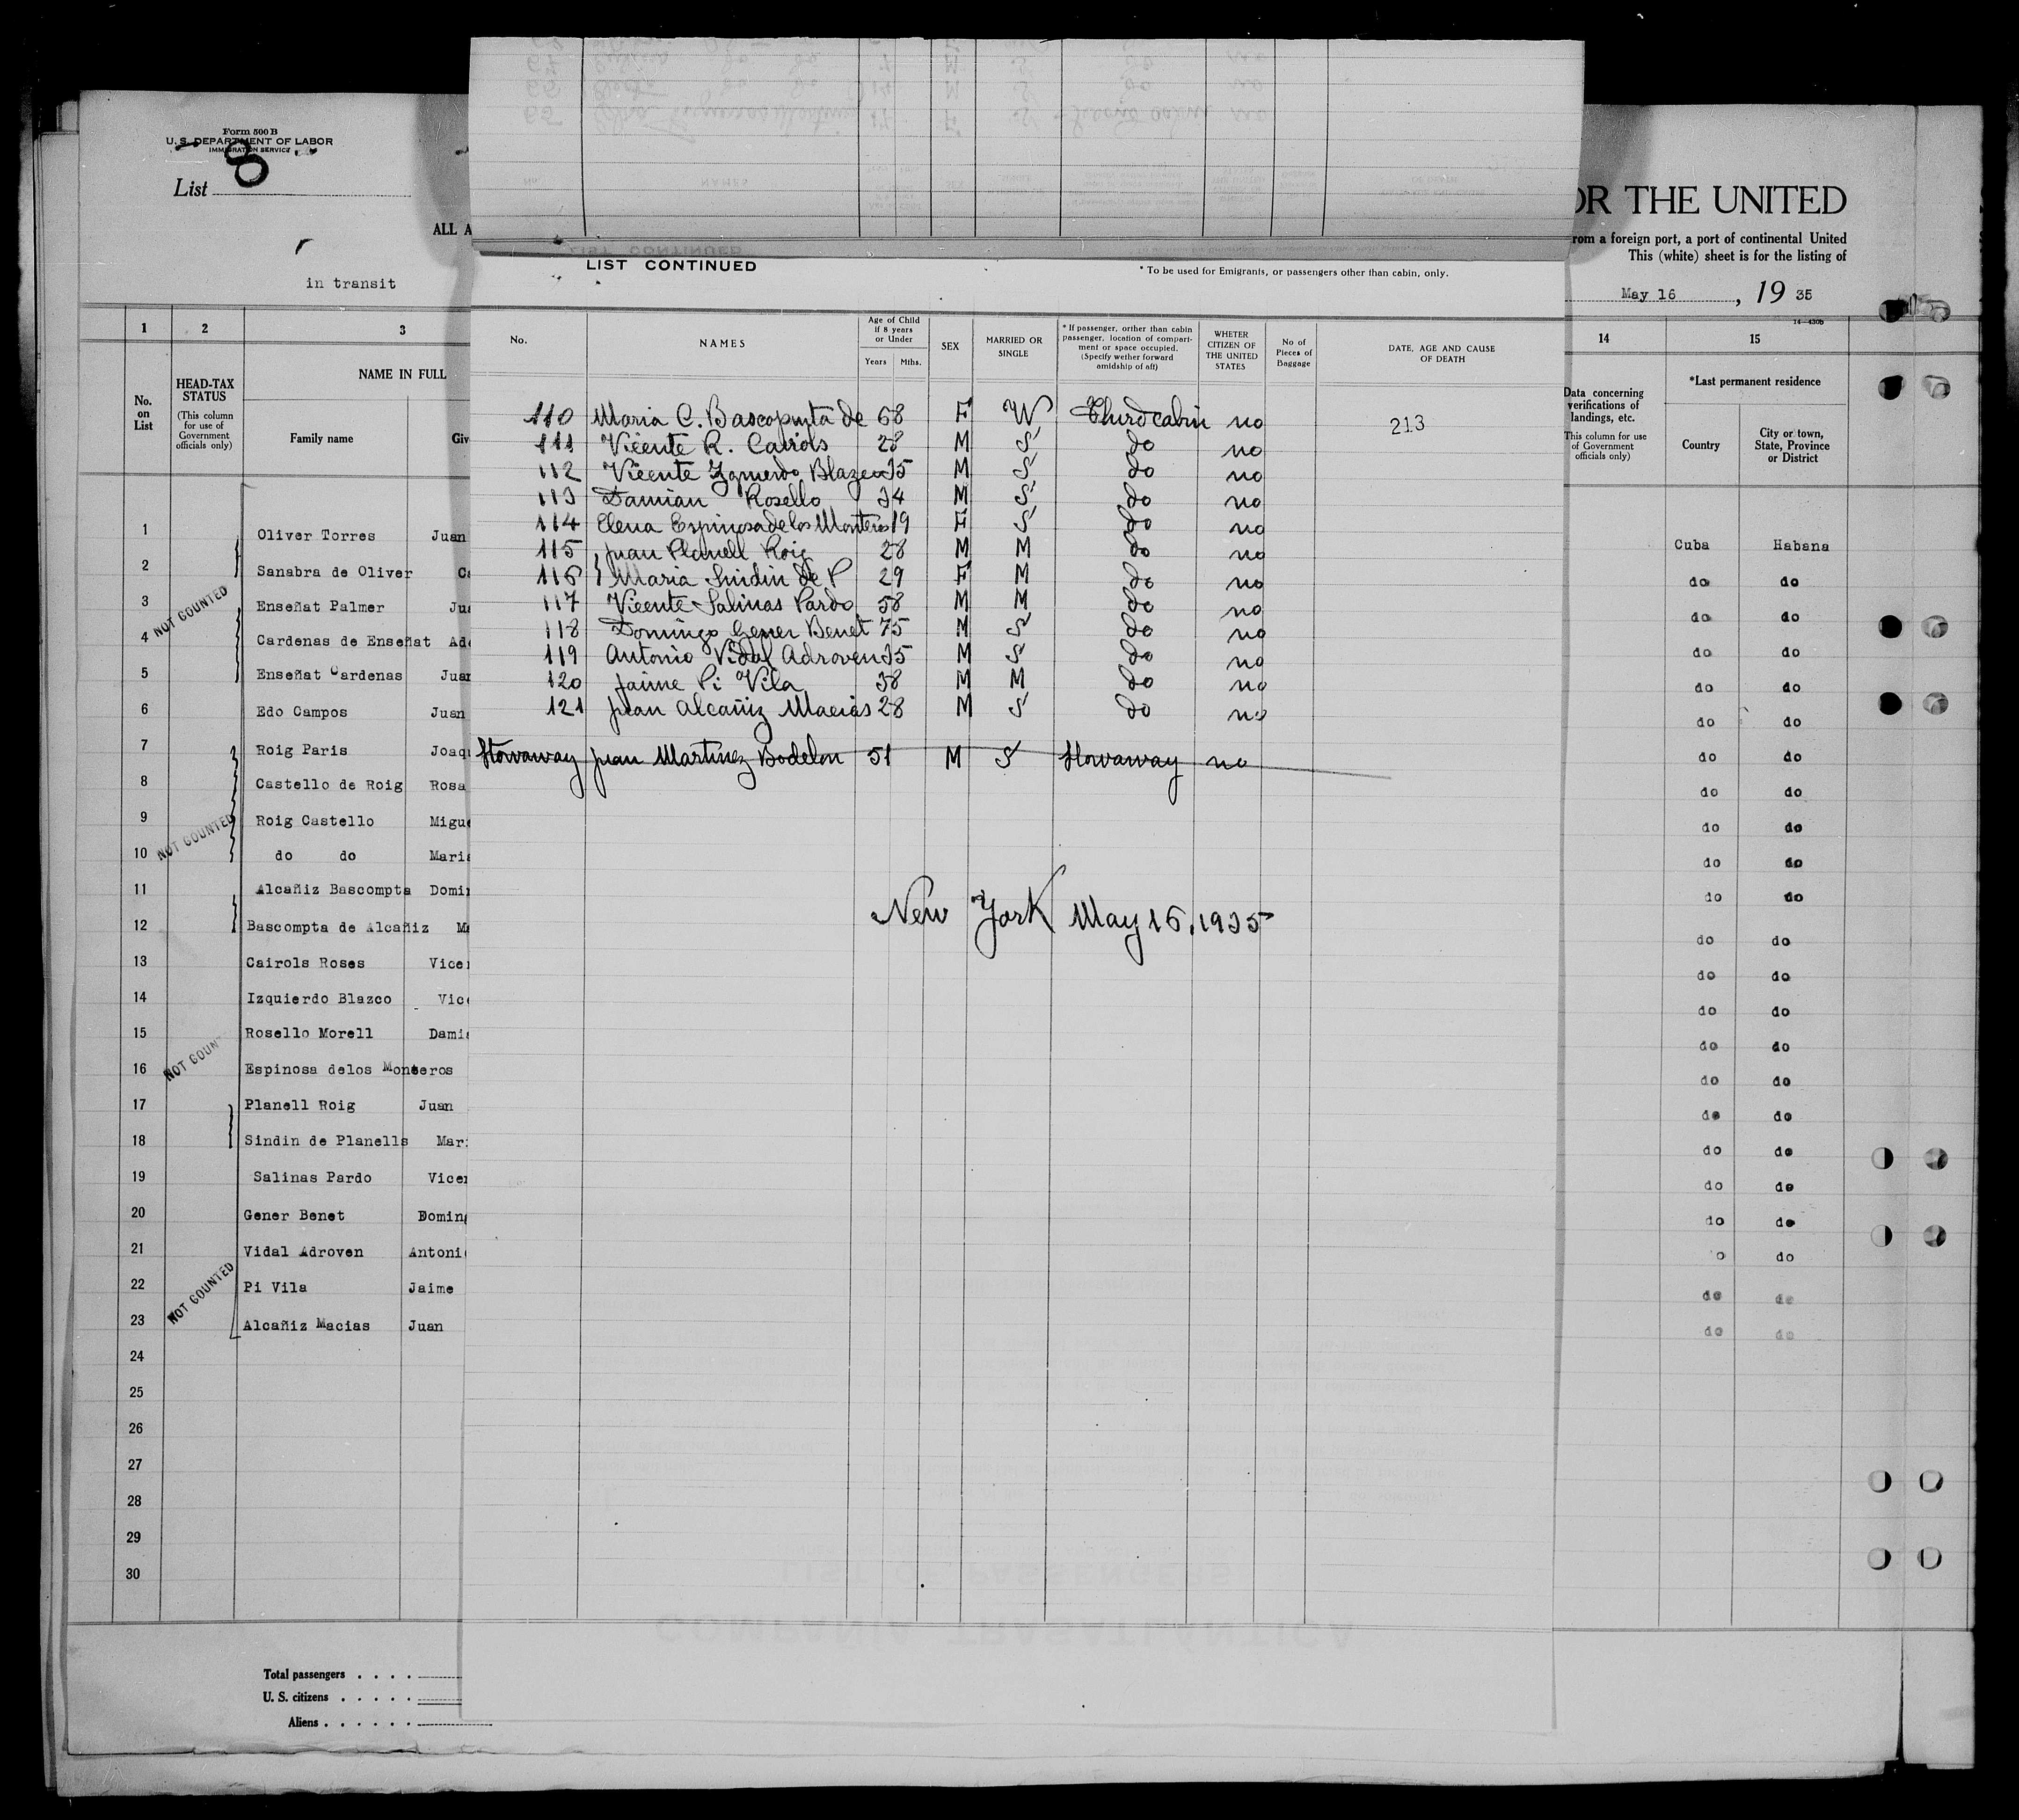 Form 500 B
U. S. DEPARTMENT OF LABOR
IMMIGRATION SERVICE
List 8
ALL A
in transit
OR THE UNITED
rom a foreign port, a port of continental United
This (white) sheet is for the listing of
May 16, 19 35
14—430b
LIST CONTINUED
* To be used for Emigrants, or passengers other than cabin, only.
No. NAMES Age of Child if 8 years or Under Years Mths. SEX MARRIED OR SINGLE * If passenger, orther than cabin passenger, location of compartment or space occupied. (Specify wether forward amidship of aft) WHETER CITIZEN OF THE UNITED STATES No of Pieces of Baggage DATE, AGE AND CAUSE OF DEATH
110 Maria C. Bascopmta de 68 F W Third cabin no 213
111 Vicente R. Cairols 28 M S do no
112 Vicente Izquierdo Blazco 35 M S do no
113 Damian Rosello 34 M S do no
114 Elena Espinosa delos Monteros 19 F S do no
115 Juan Planell Roig 28 M M do no
116 Maria Sindin de P 29 F M do no
117 Vicente Salinas Pardo 58 M M do no
118 Domingo Gener Benet 75 M S do no
119 Antonio Vidal Adroven 35 M S do no
120 Jaime Pi Vila 38 M M do no
121 Juan Alcañiz Macias 28 M S do no
Stowaway Juan Martinez Bodelon 51 M S Stowaway no
New York May 16, 1935
1 2 3 14 15
No. on List
HEAD-TAX STATUS
(This column for use of Government officials only)
NAME IN FULL
Family name Giv
Data concerning verifications of landings, etc.
This column for use of Government officials only)
*Last permanent residence
Country City or town, State, Province or District
1 Oliver Torres Juan Cuba Habana
2 Sanabra de Oliver Ca do do
NOT COUNTED
3 Enseñat Palmer Jua do do
4 Cardenas de Enseñat Ade do do
5 Enseñat Cardenas Juan do do
6 Edo Campos Juan do do
7 Roig Paris Joaqu do do
8 Castello de Roig Rosa do do
9 Roig Castello Migue do do
NOT COUNTED
10 do do Maria do do
11 Alcañiz Bascompta Domin do do
12 Bascompta de Alcañiz Ma do do
13 Cairols Roses Vicen do do
14 Izquierdo Blazco Vice do do
15 Rosello Morell Damia do do
NOT COUN
16 Espinosa delos Monteros do do
17 Planell Roig Juan do do
18 Sindin de Planells Mar do do
19 Salinas Pardo Vicen do do
20 Gener Benet Doming do do
21 Vidal Adroven Antoni o do
NOT COUNTED
22 Pi Vila Jaime do do
23 Alcañiz Macias Juan do do
24
25
26
27
28
29
30
Total passengers
U. S. citizens
Aliens